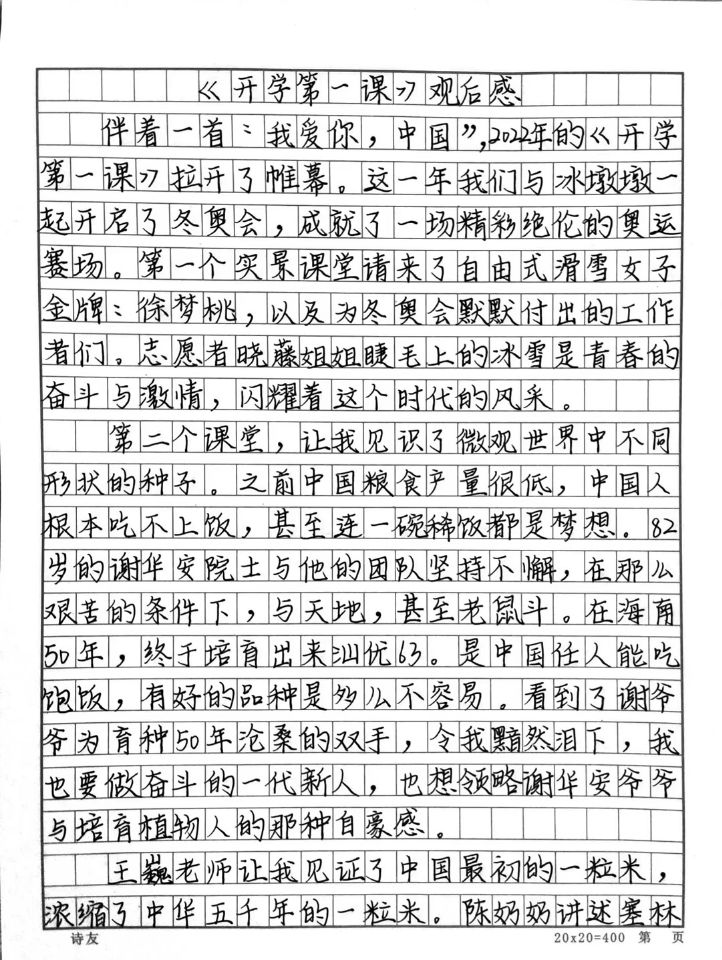 《开学第一课》观后感
伴着一首：我爱你，中国”，2022年的《开学
第一课》拉开了帷幕。这一年我们与冰墩墩一
起开启了冬奥会，成就了一场精彩绝伦的奥运
赛场。第一个实景课堂请来了自由式滑雪女子
金牌：徐梦桃，以及为冬奥会默默付出的工作
者们。志愿者晓藤姐姐睫毛上的冰雪是青春的
奋斗与激情，闪耀着这个时代的风采。
第二个课堂，让我见识了微观世界中不同
形状的种子。之前中国粮食产量很低，中国人
根本吃不上饭，甚至连一碗稀饭都是梦想。82
岁的谢华安院士与他的团队坚持不懈，在那么
艰苦的条件下，与天地，甚至老鼠斗。在海南
50年，终于培育出来汕优63。是中国任人能吃
饱饭，有好的品种是多么不容易。看到了谢爷
爷为育种50年沧桑的双手，令我黯然泪下，我
也要做奋斗的一代新人，也想领略谢华安爷爷
与培育植物人的那种自豪感。
王巍老师让我见证了中国最初的一粒米，
浓缩了中华五千年的一粒米。陈奶奶讲述塞林
诗友
20x20=400 第 页